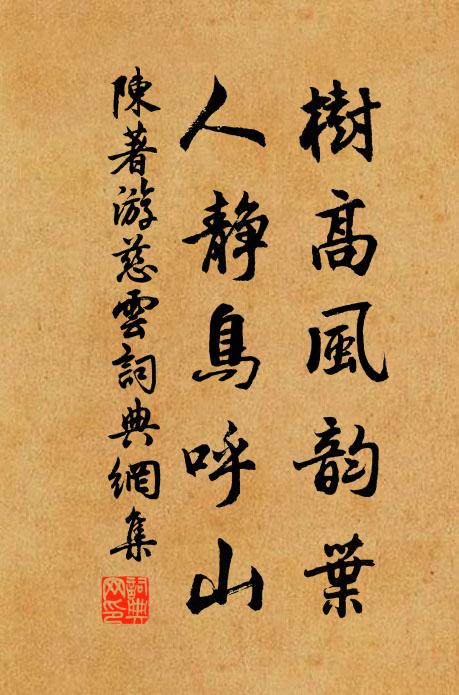 樹高風韵葉
人靜鳥呼山
陳著游慈雲詞典網集
詞典网印